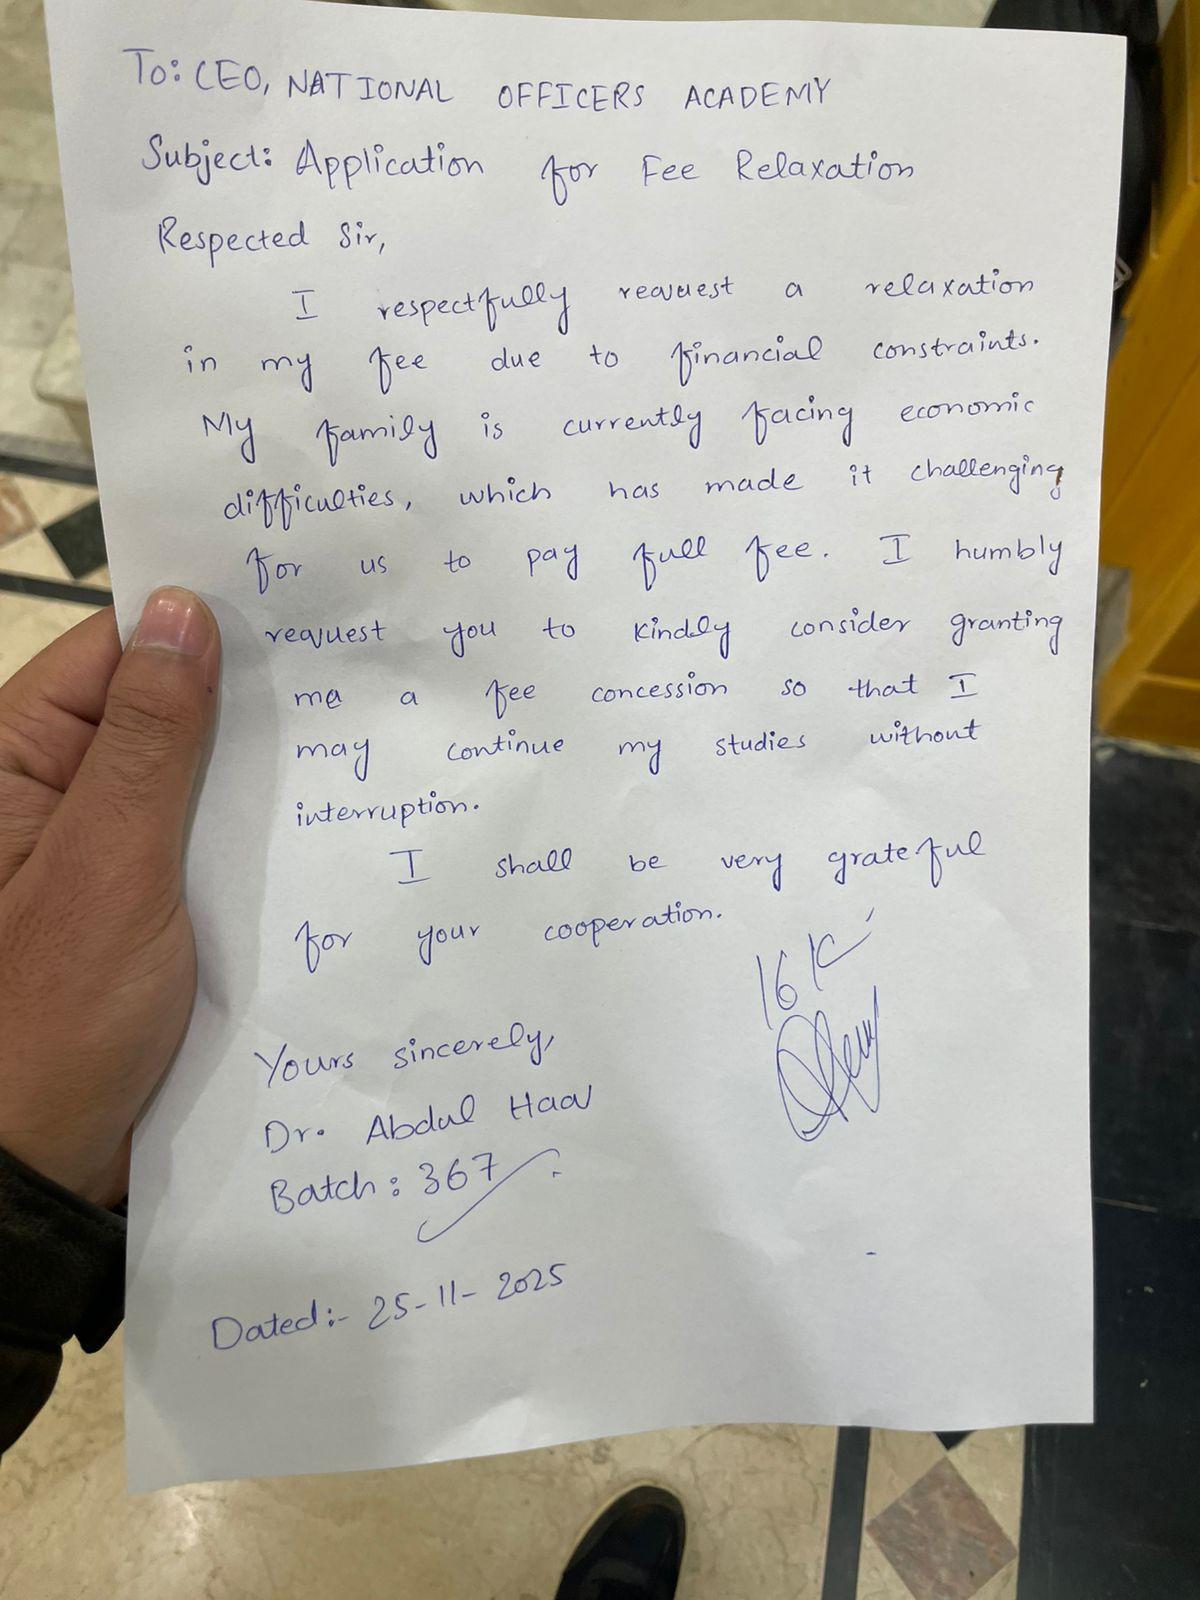 To: CEO, NATIONAL OFFICERS ACADEMY
Subject: Application for Fee Relaxation
Respected Sir,
I respectfully request a relaxation
in my fee due to financial constraints.
My family is currently facing economic
difficulties, which has made it challenging
for us to pay full fee. I humbly
request you to kindly consider granting
me a fee concession so that I
may continue my studies without
interruption.
I shall be very grateful
for your cooperation.
16K
Yours sincerely,
Dr. Abdul Haq
Batch: 367
Dated:- 25-11-2025